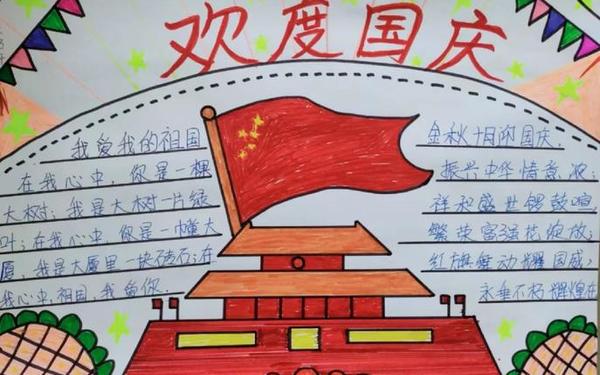 欢度国庆
我爱我的祖国
在我心中，你是一棵
大树；我是大树一片绿
叶；在我心中，你是一幢大
厦，我是大厦里一块砖石；在
我心中，祖国，我爱你．
金秋十月迎国庆．
振兴中华情意浓；
祥和盛世锣鼓喧
繁荣富强花炮放；
红旗舞动耀国威；
永垂不朽辉煌在